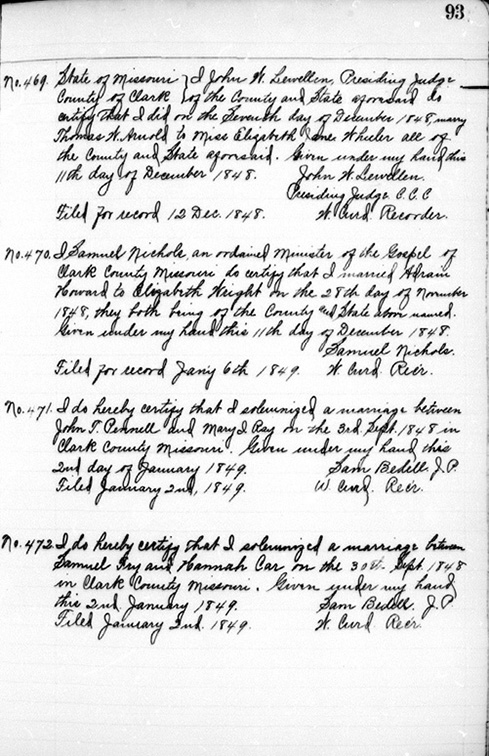 93
No. 469. State of Missouri } I John W. Lewellen, Presiding Judge
County of Clark } of the County and State aforesaid do
certify that I did on the Seventh day of December 1848, marry
Thomas W. Arnold to Miss Elizabeth Jane Wheeler all of
the County and State aforesaid. Given under my hand this
11th day of December 1848. John W. Lewellen.
Presiding Judge C.C.C
Filed for record 12 Dec. 1848. W. Curd Recorder.
No. 470. I Samuel Nichols, an ordained Minister of the Gospel of
Clark County Missouri do certify that I married Hiram
Howard to Elizabeth Weight on the 28th day of November
1848, they both being of the County and State above named.
Given under my hand this 11th day of December 1848.
Samuel Nichols.
Filed for record Jany 6th 1849. W. Curd. Recr.
No. 471. I do hereby certify that I solemnized a marriage between
John T. Pennell and Mary I. Ray on the 3rd. Sept. 1848 in
Clark County Missouri. Given under my hand this
2nd day of January 1849. Sam Bedell. J.P.
Filed January 2nd, 1849. W. Curd. Recr.
No. 472. I do hereby certify that I solemnized a marriage between
Samuel Fry and Hannah Car on the 30th. Sept. 1848
in Clark County Missouri. Given under my hand
this 2nd. January 1849. Sam Bedell. J.P.
Filed January 2nd. 1849. W. Curd. Recr.